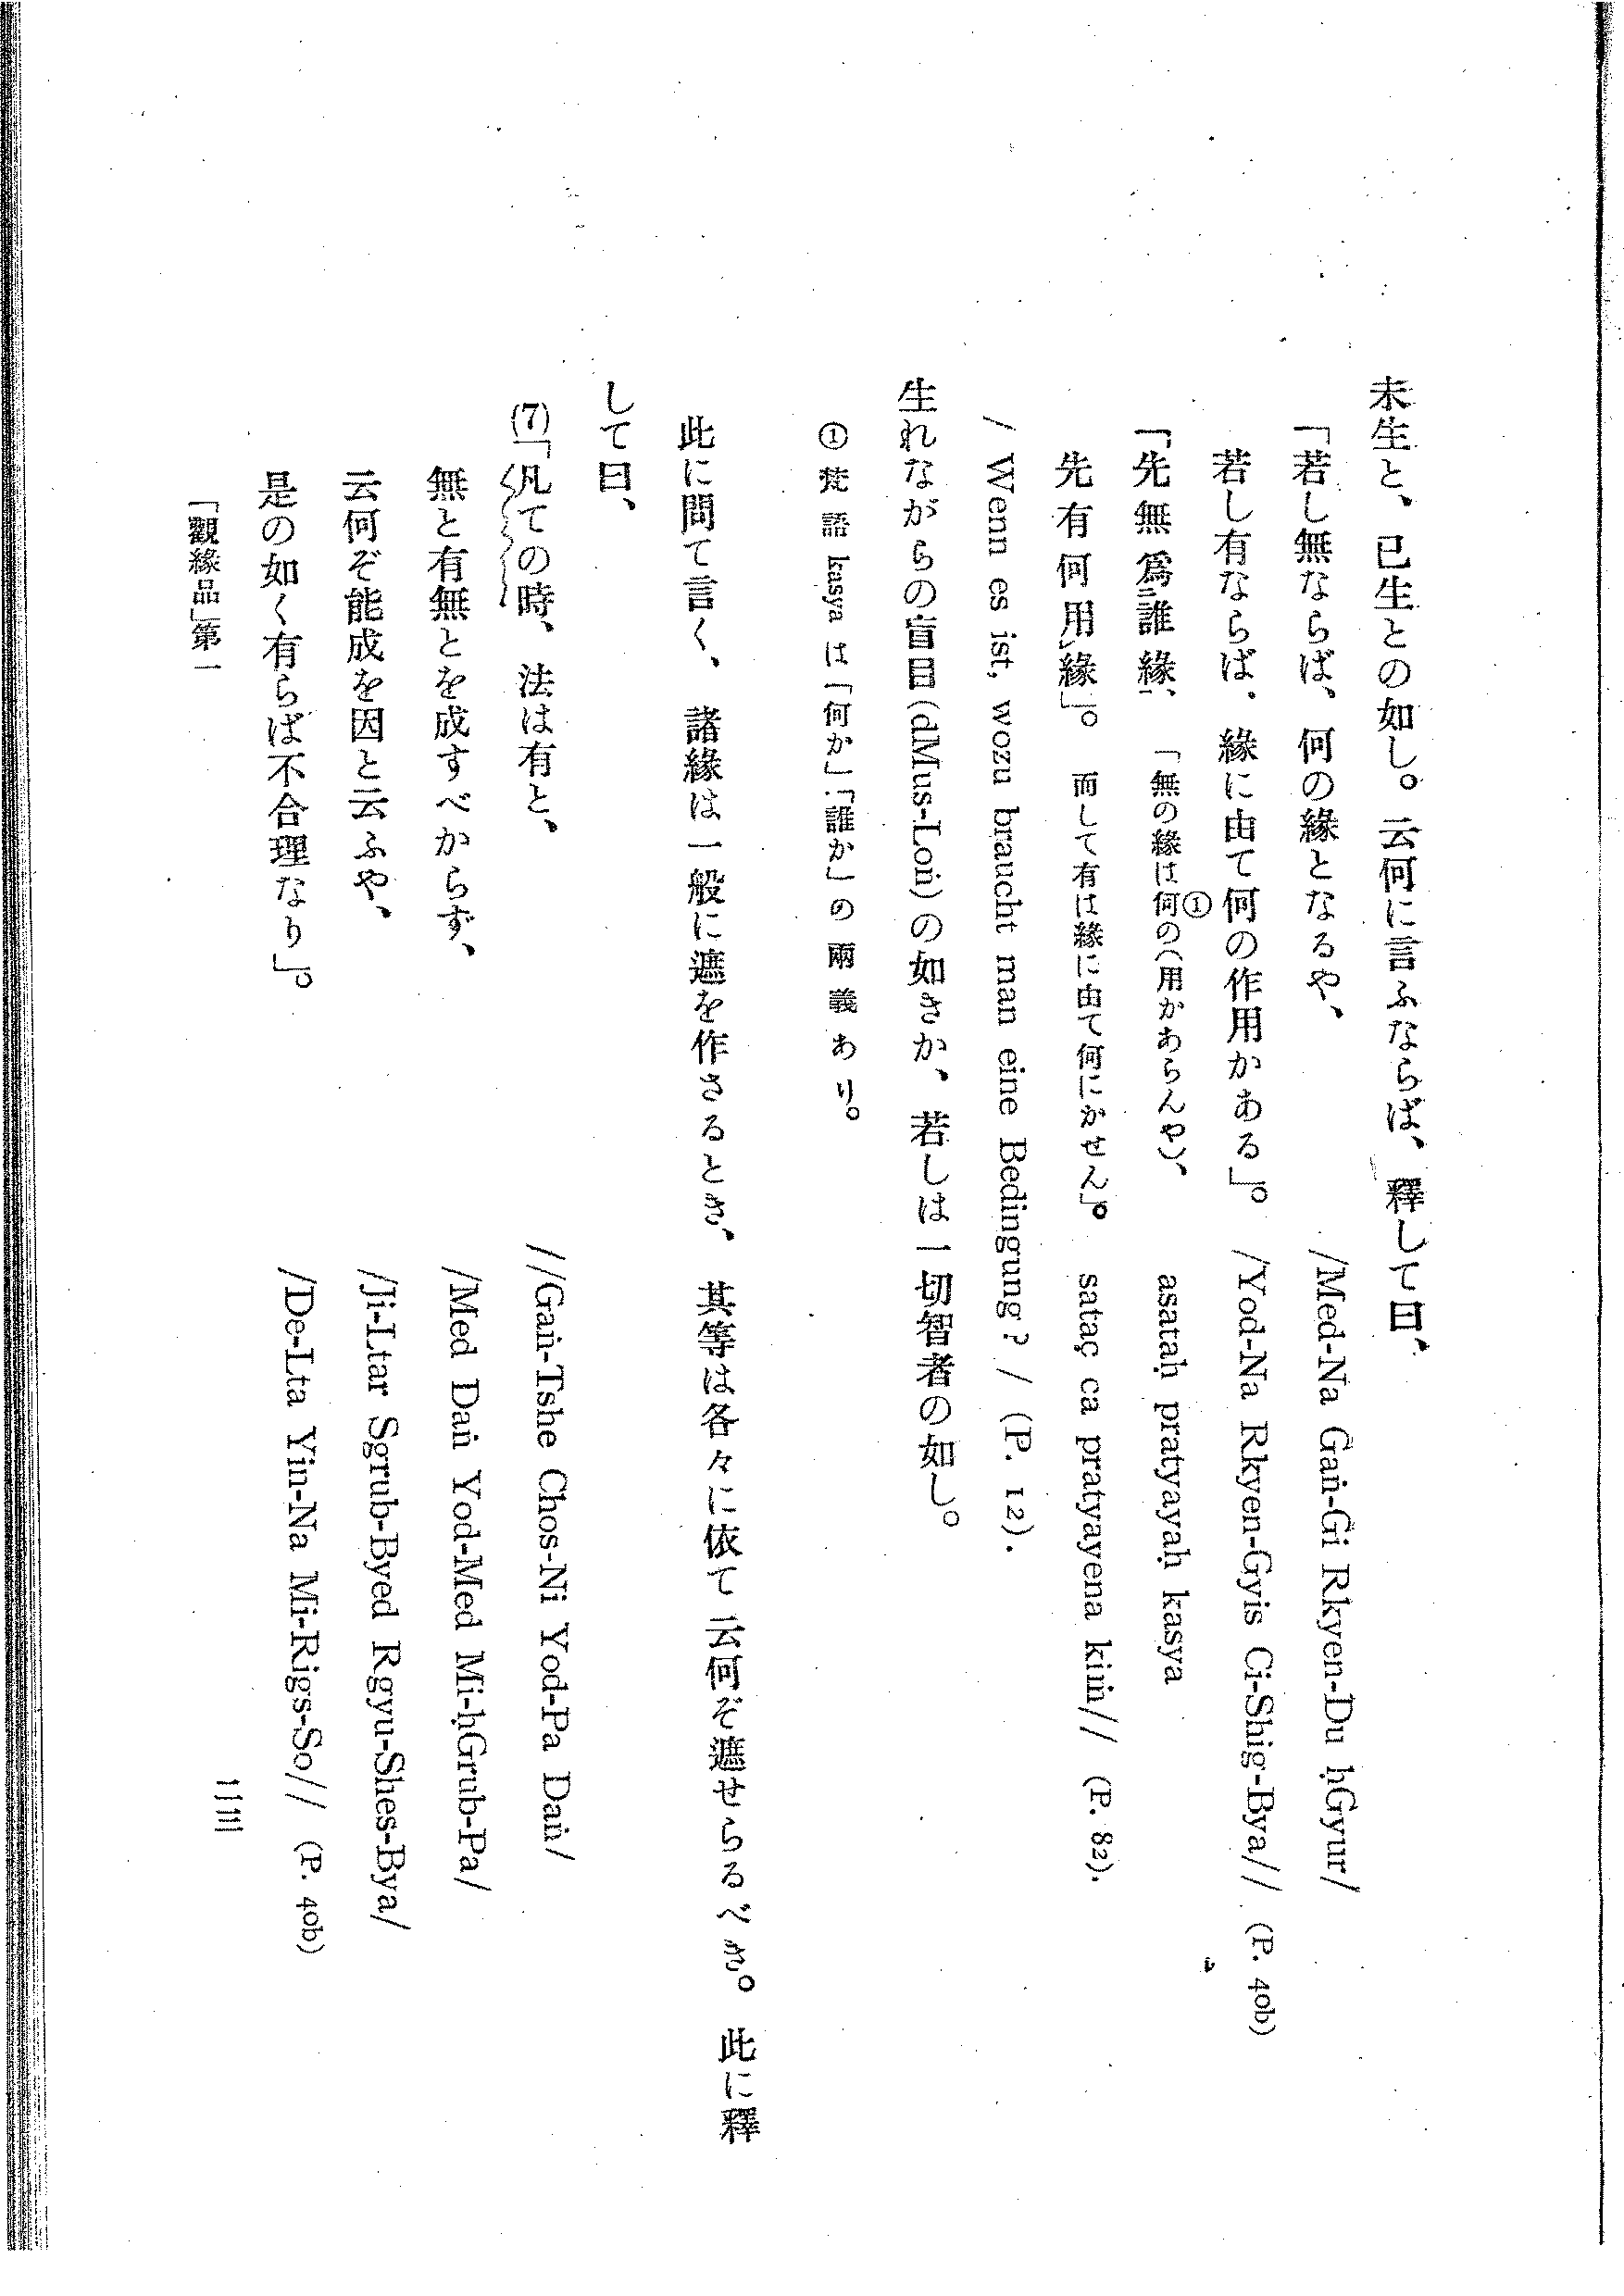 未生と、已生との如し。云何に言ふならば、釋して曰、
「若し無ならば、何の緣となるや、 /Med-Na Gaṅ-Gi Rkyen-Du ḥGyur/
若し有ならば、緣に由て何の作用かある」。 /Yod-Na Rkyen-Gyis Ci-Shig-Bya// (P. 40b)
「先無爲㆓誰緣㆒、 「無の緣は何①の(用かあらんや)、 asataḥ pratyayaḥ kasya
先有何用㆑緣」。 而して有は緣に由て何にかせん」。 sataç ca pratyayena kiṁ// (P. 82).
/ Wenn es ist, wozu braucht man eine Bedingung? / (P. 12).
生れながらの盲目(dMus-Loṅ)の如きか、若しは一切智者の如し。
① 梵語 kasya は「何か」「誰か」の兩義あり。
此に問て言く、諸緣は一般に遮を作さるとき、其等は各々に依て云何ぞ遮せらるべき。此に釋
して曰、
(7)「凡ての時、法は有と、 //Gaṅ-Tshe Chos-Ni Yod-Pa Daṅ/
無と有無とを成すべからず、 /Med Daṅ Yod-Med Mi-ḥGrub-Pa/
云何ぞ能成を因と云ふや、 /Ji-Ltar Sgrub-Byed Rgyu-Shes-Bya/
是の如く有らば不合理なり」。 /De-Lta Yin-Na Mi-Rigs-So// (P. 40b)
「觀緣品」第一
二三